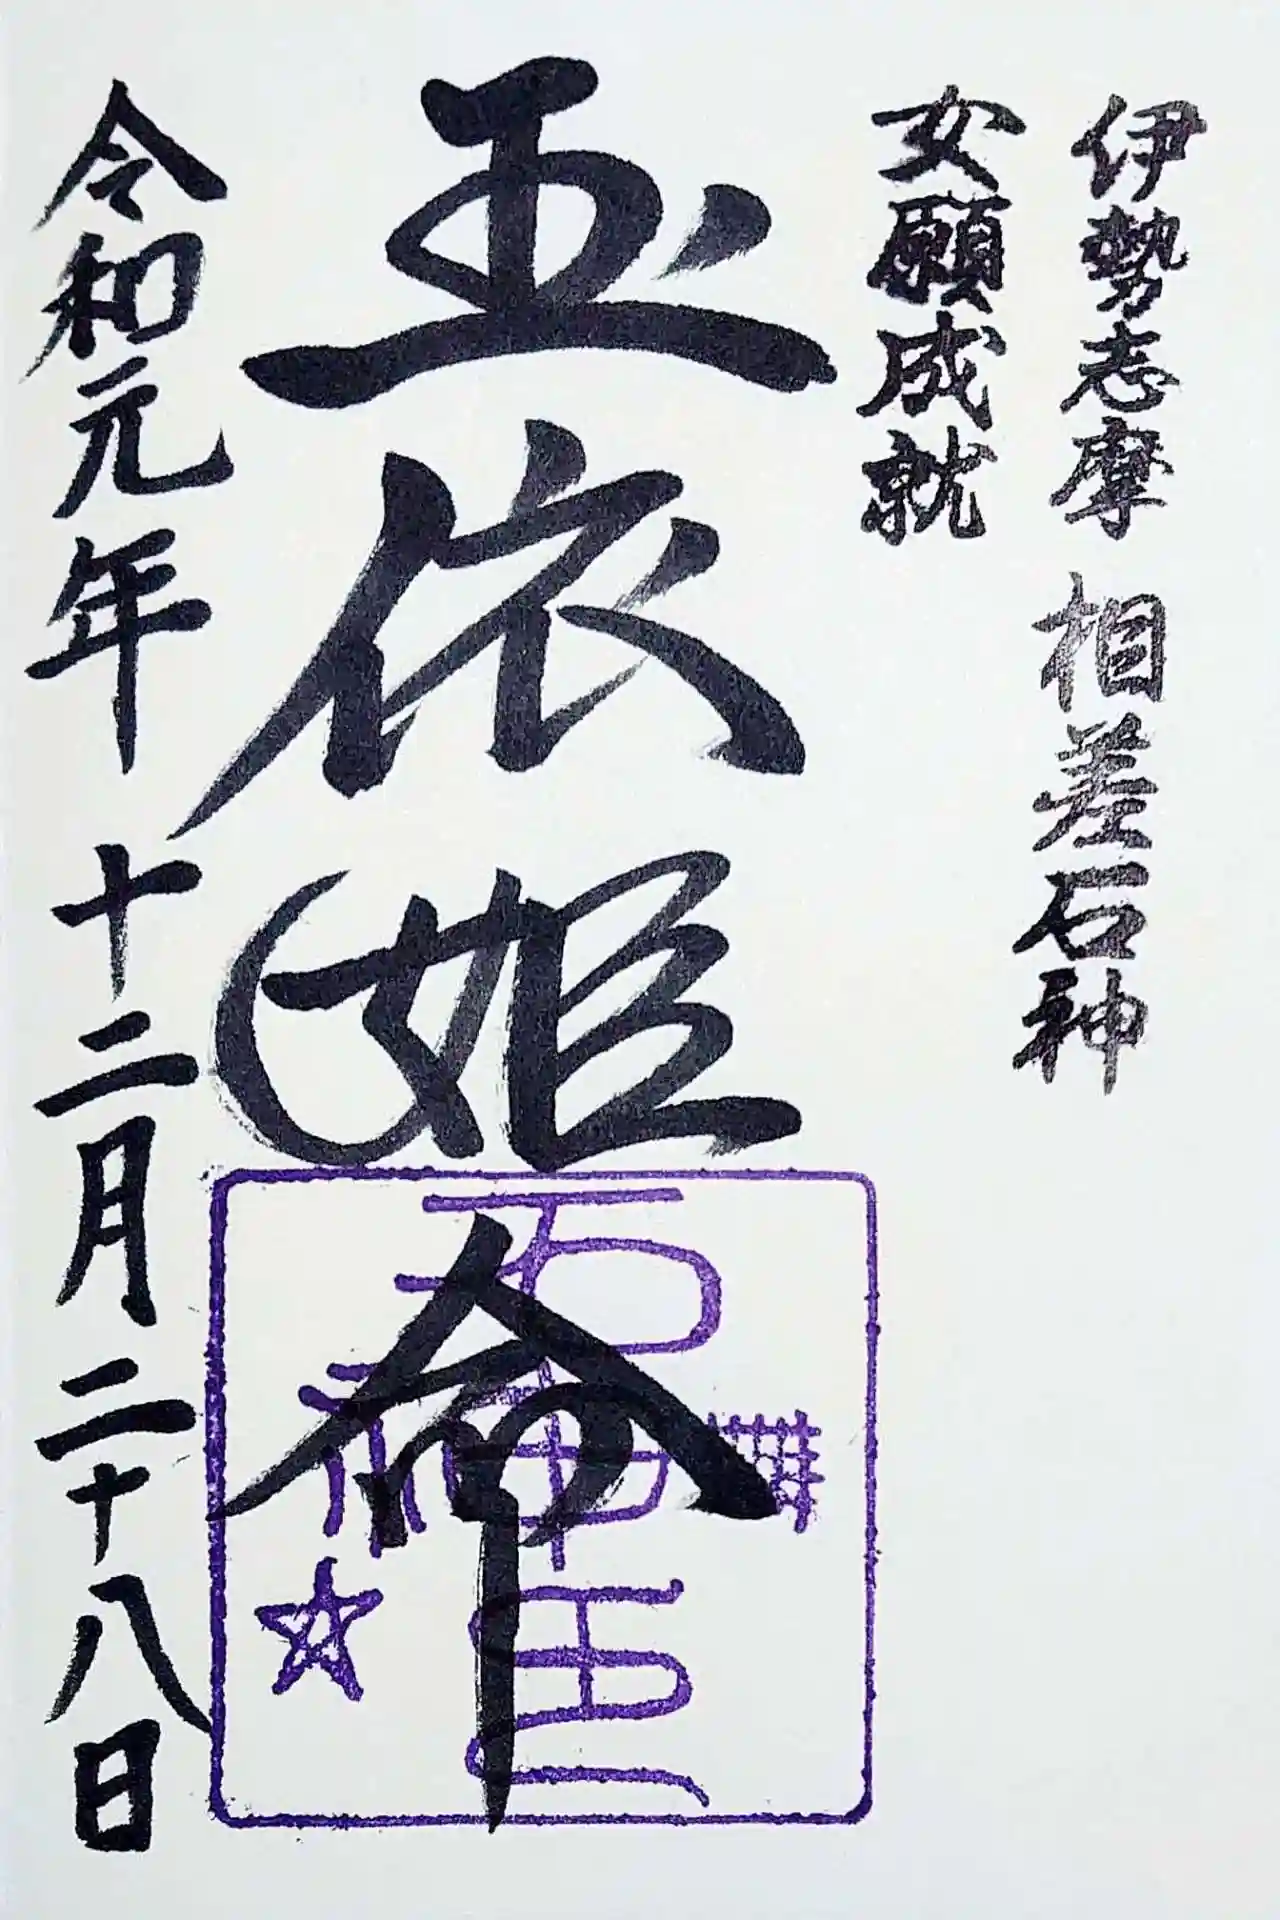 伊勢志摩 相差石神
女願成就
玉依姫命
令和元年 十二月二十八日
石神